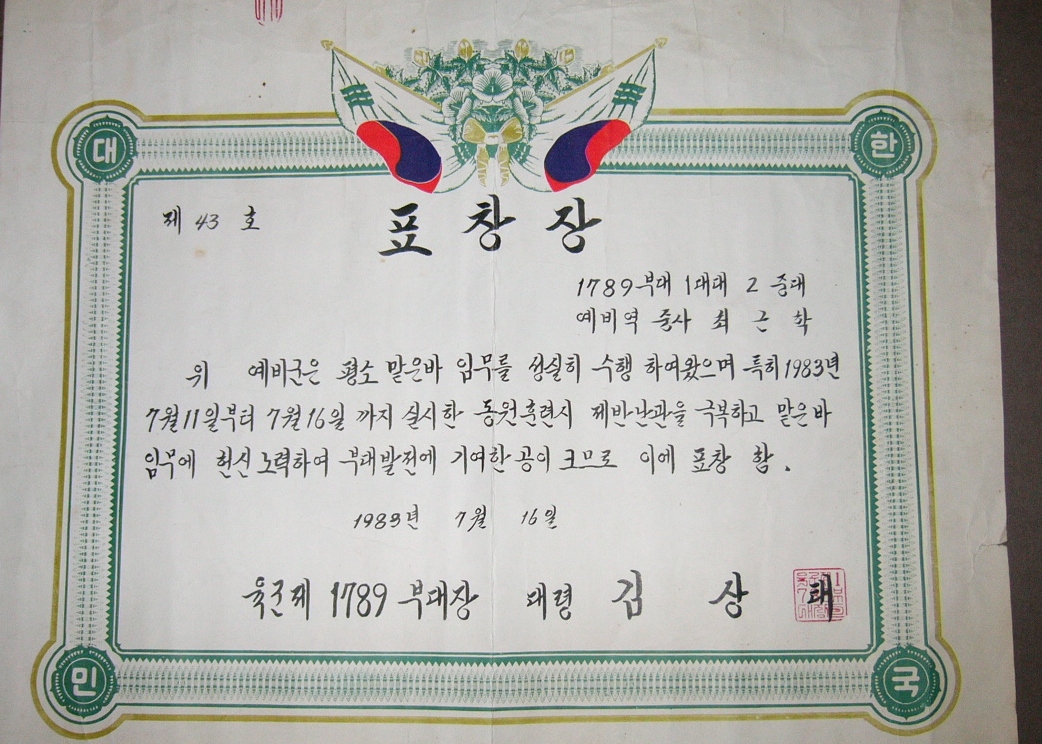 대 한
제 43 호
표 창 장
1789부대 1대대 2 중대
예비역 중사 최 근 학
위 예비군은 평소 맡은바 임무를 성실히 수행 하여왔으며 특히 1983년
7월11일부터 7월16일 까지 실시한 동원훈련시 제반난관을 극복하고 맡은바
임무에 헌신 노력하여 부대발전에 기여한 공이 크므로 이에 표창 함.
1983년 7월 16일
육군제 1789 부대장 대령 김 상 태
민 국